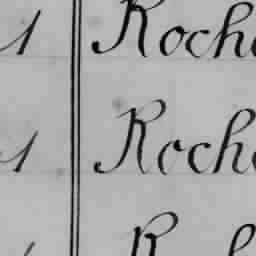 1 Roche
1 Roche